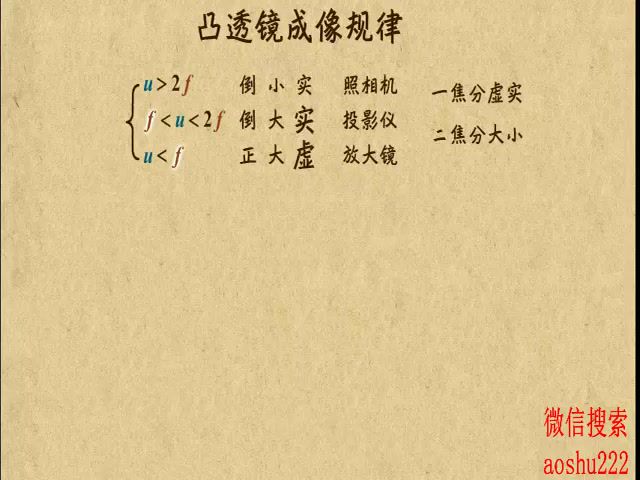 凸透镜成像规律
u>2f 倒 小 实 照相机
f<u<2f 倒 大 实 投影仪
u<f 正 大 虚 放大镜
一焦分虚实
二焦分大小
微信搜索
aoshu222